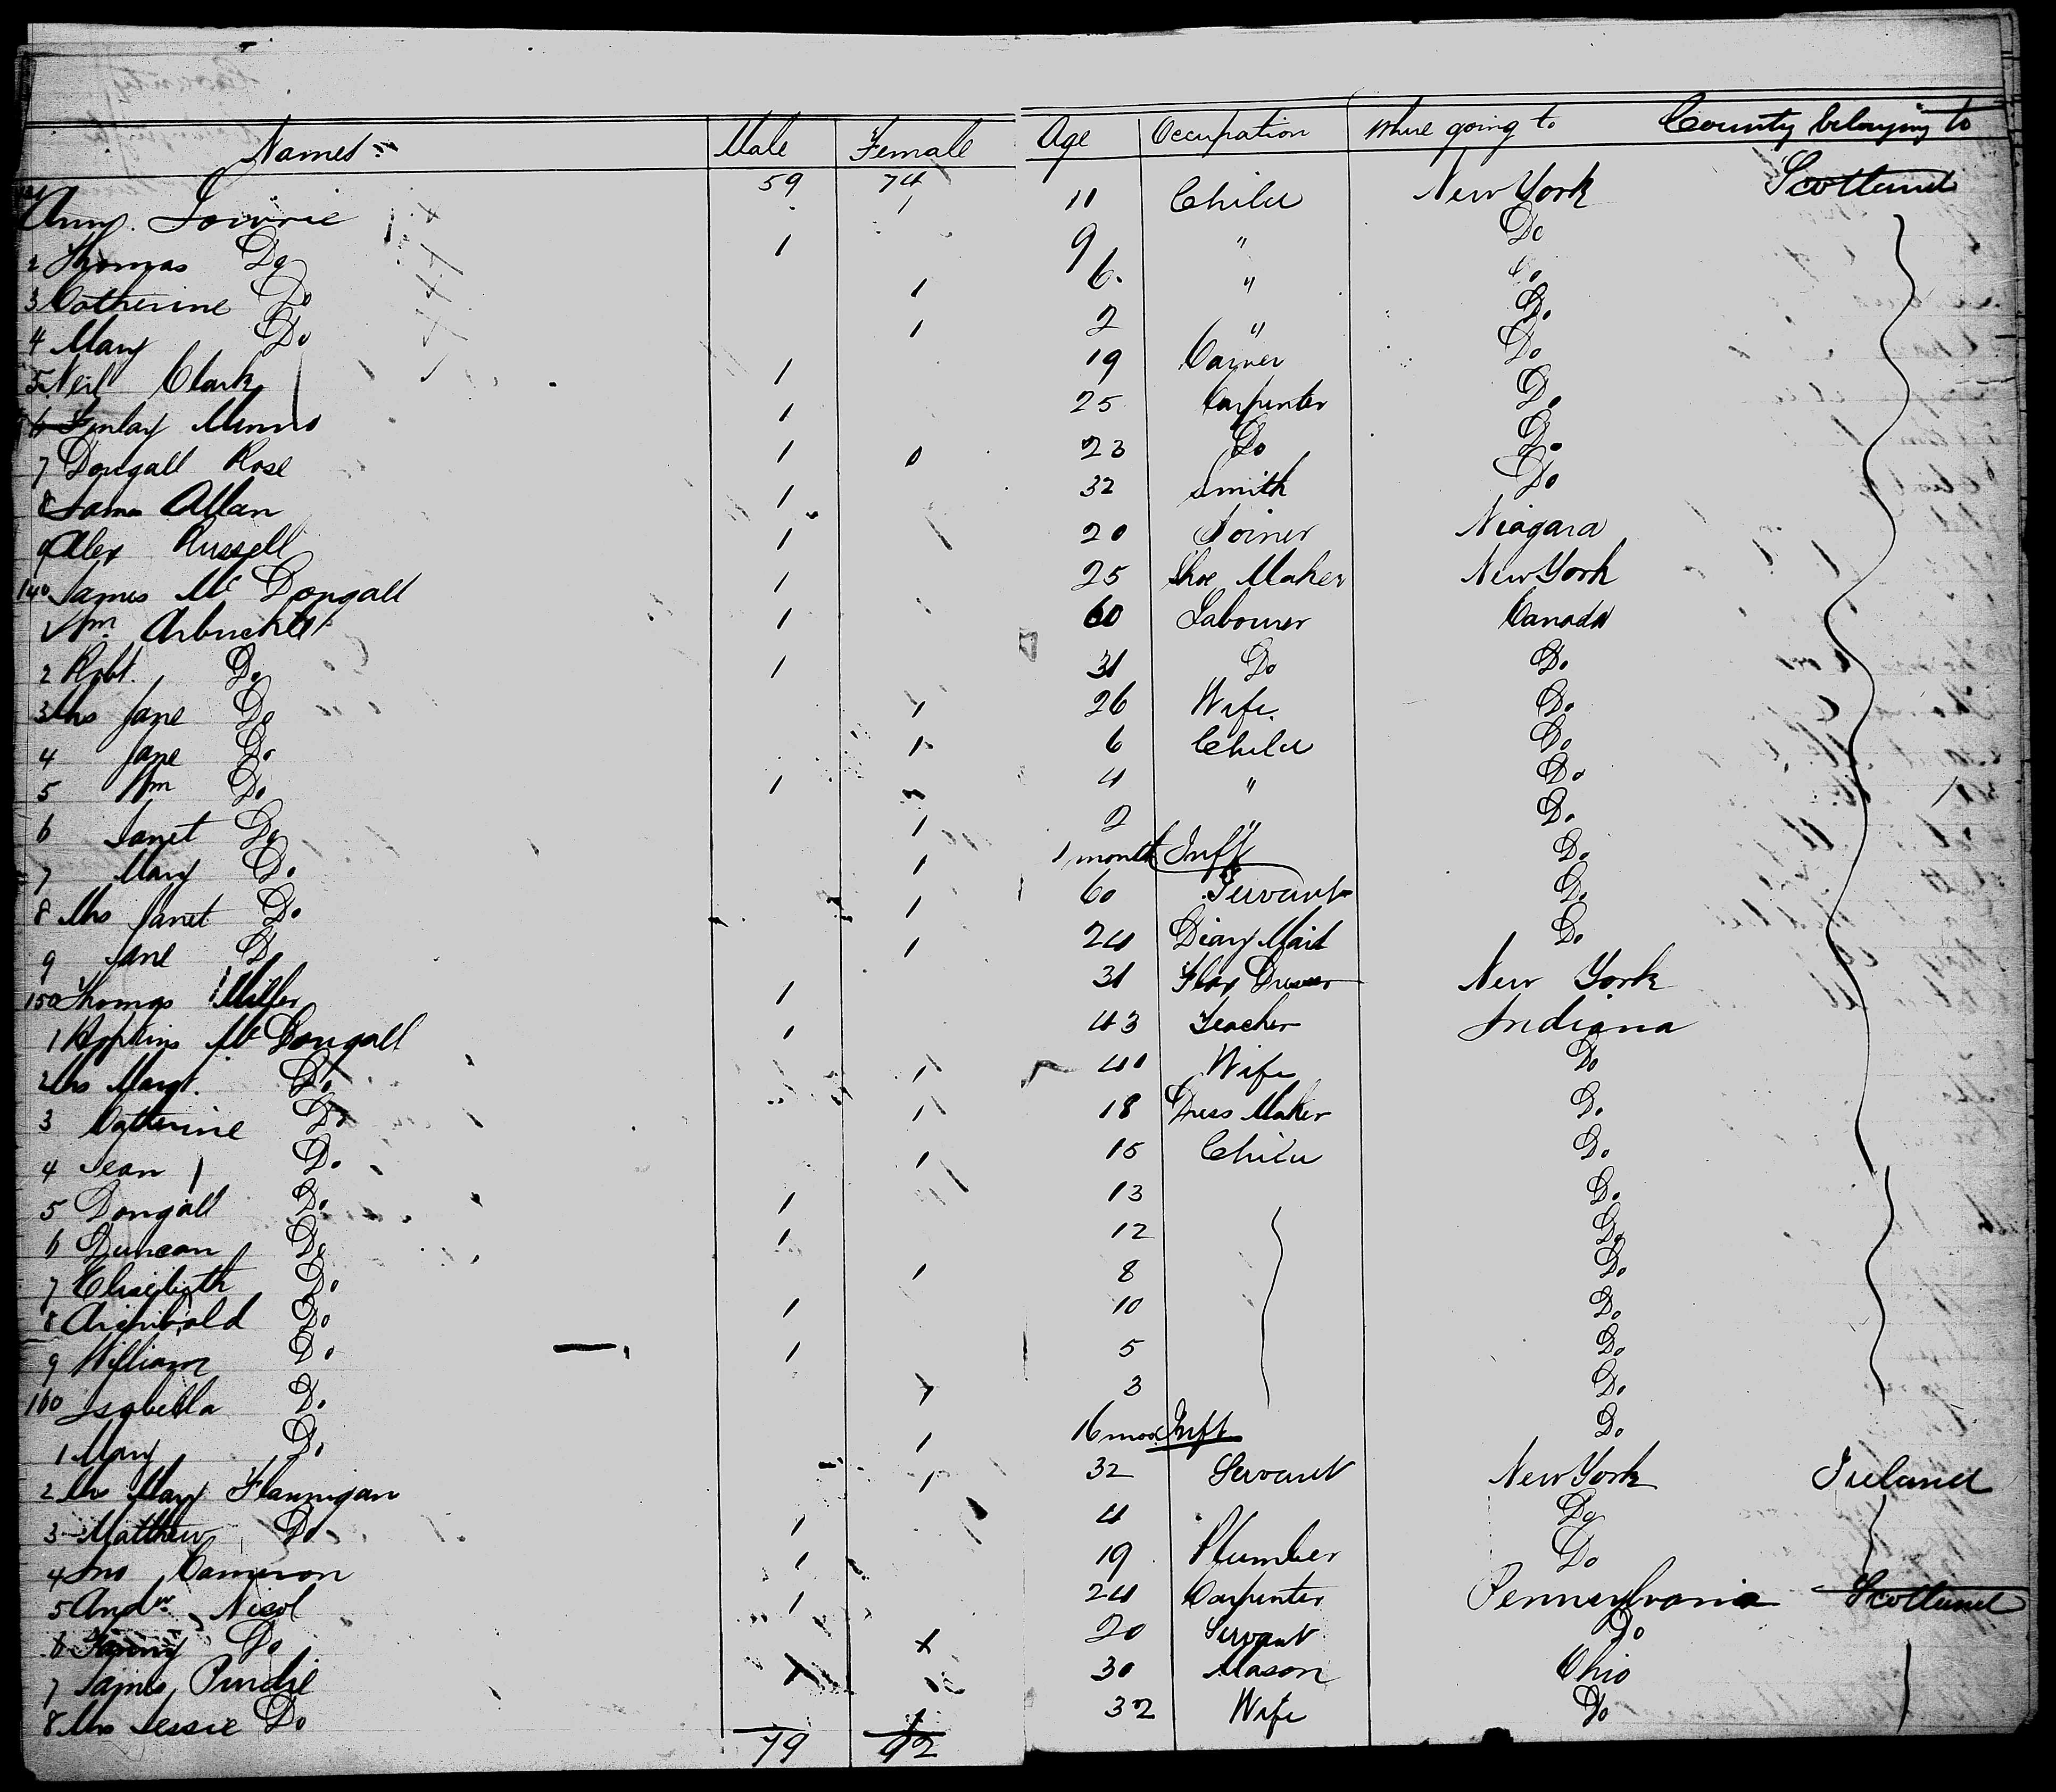 Names Male Female Age Occupation Where going to County belonging to
59 74
Ann Lowrie 1 11 Child New York Scotland
2 Thomas Do 1 9 " Do
3 Catherine Do 1 6 " Do
4 Mary Do 1 2 " Do
5 Neil Clark 1 19 Do
6 Finlay Munro 1 25 Carpenter Do
7 Dougall Rose 1 23 Do Do
8 James Allan 1 32 Smith Do
9 Alex Russell 1 20 Joiner Niagara
140 James Mc Dougall 1 25 Shoe Maker New York
1 Wm Arbuckle 1 60 Labourer Canada
2 Robt. Do 1 31 Do Do
3 Mrs Jane Do 1 26 Wife Do
4 Jane Do 1 6 Child Do
5 Wm Do 1 4 " Do
6 Janet Do 1 2 " Do
7 Mary Do 1 1 month Inft Do
8 Mrs Janet Do 1 60 Servant Do
9 Jane Do 1 24 Diary Maid Do
150 Thomas Miller 1 31 Flax Dresser New York
1 Hopkins Mc Dougall 1 43 Teacher Indiana
2 Mrs Margt. Do 1 40 Wife Do
3 Catherine Do 1 18 Dress Maker Do
4 Jean Do 1 15 Child Do
5 Dougall Do 1 13 Do
6 Duncan Do 1 12 Do
7 Elisebeth Do 1 8 Do
8 Archibald Do 1 10 Do
9 William Do 1 5 Do
160 Isabella Do 1 3 Do
1 Mary Do 1 16 mos Inft Do
2 Mrs Mary Flannigan 1 32 Servant New York Ireland
3 Matthew Do 1 4 Do
4 Jno Cameron 1 19 Plumber Do
5 Andw Nicol 1 24 Carpenter Pennsylvania Scotland
6 Fanny Do 1 20 Servant Do
7 James Purdie 1 30 Mason Ohio
8 Mrs Jessie Do 1 32 Wife Do
79 92